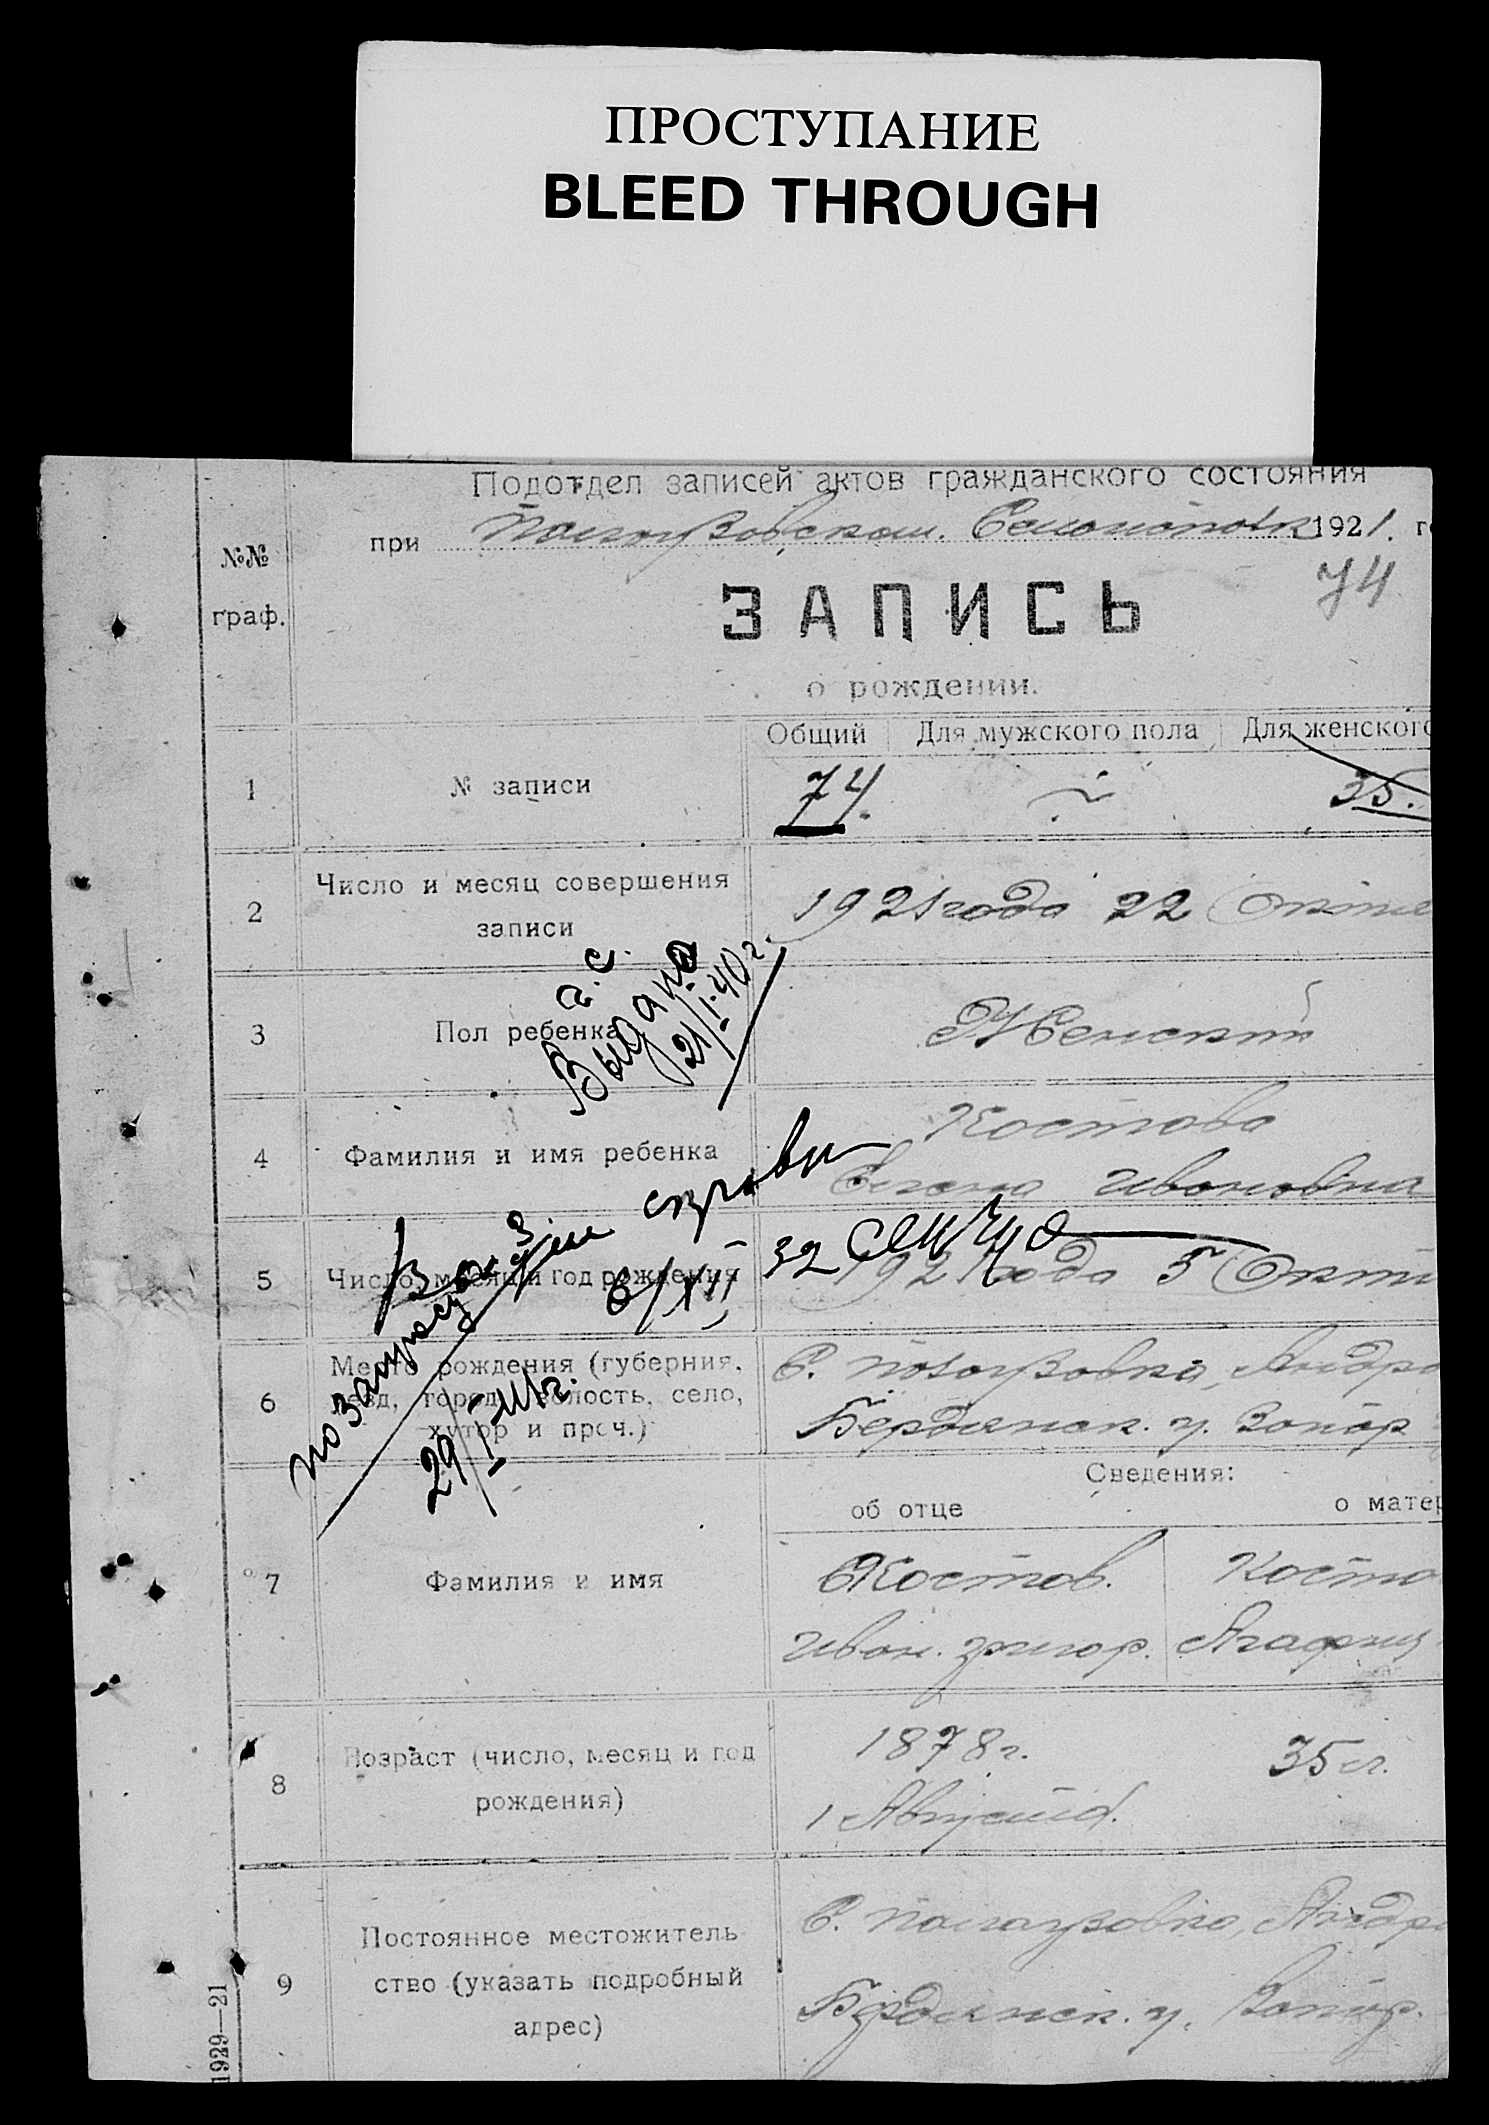 ПРОСТУПАНИЕ
BLEED THROUGH
Подотдел записей актов гражданского состояния
при 1921. г
№№
граф.
74
ЗАПИСЬ
о рождении.
Общий Для мужского пола Для женского
1 № записи 74. 35.
2 Число и месяц совершения
записи
1921 года 22
3 Пол ребенка Женский
а. с.
Выдана
21/I-40 г.
4 Фамилия и имя ребенка
Костова
Ивановна
5 Число, месяц и год рождения 1921 года 5
6/XII 32
по запросу
29/I-41 г.
6 Место рождения (губерния,
уезд, город, волость, село,
хутор и проч.)
Бердянск. у. Запор
Сведения:
об отце о матер
7 Фамилия и имя
Костов. Косто
Иван. Григор. Агафия
8 Возраст (число, месяц и год
рождения)
1878 г. 35 л.
1 Августа.
9 Постоянное местожитель
ство (указать подробный
адрес)
Бердянск. у. Запор.
1929—21